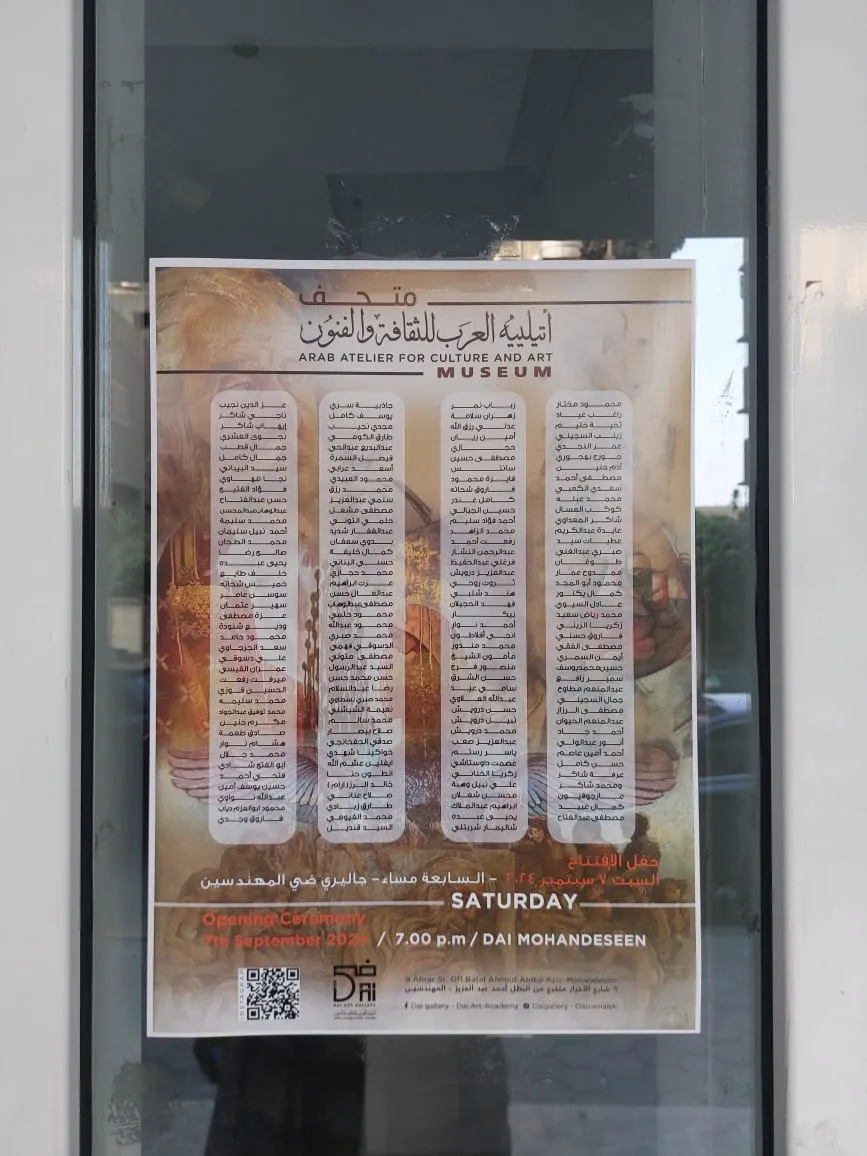 متحف
أتيلييه العرب للثقافة والفنون
ARAB ATELIER FOR CULTURE AND ART
MUSEUM
محمود مختار
راغب عياد
تحية حليم
زينب السجيني
عمر النجدي
جورج بهجوري
آدم حنين
مصطفى أحمد
سعدي الكعبي
محمد عبله
كوكب العسال
شاكر المعداوي
عايدة عبدالكريم
عطيات سيد
صبري عبدالغني
طوغان
ممدوح عمار
محمود أبو المجد
كمال يكنور
عادل السيوي
محمد رياض سعيد
زكريا الزيني
فاروق حسني
مصطفى الفقي
أيمن السمري
حسين محمد يوسف
سمير رافع
عبدالمنعم مطاوع
جمال السجيني
مصطفى الرزاز
عبدالمنعم الحيوان
أحمد جاد
أنور عبدالولي
أحمد أمين عاصم
حسن كامل
عرفة شاكر
ومحمد شاكر
مارجوفيون
كمال عبيد
مصطفى عبدالفتاح
رباب نمر
زهران سلامة
عدلي رزق الله
أمين ريان
حجازي
مصطفى حسين
سانتس
فايزة محمود
فاروق شحاته
كامل غندر
حسين الجبالي
أحمد فؤاد سليم
محمد الزاهد
رفعت أحمد
عبدالرحمن النشار
فرغلي عبدالحفيظ
عبدالعزيز درويش
ثروت روحي
هند شلبي
فهد الحجيلان
بيكار
أحمد نوار
انجي أفلاطون
محمد مندور
مأمون الشيخ
منصور فرج
حسن الشرق
سامي عبيد
عبدالله العلاوي
حسن درويش
نبيل درويش
محمد درويش
عبدالعزيز صعب
ياسر رستم
عصمت داوستاشي
زكريا الخناني
علي نبيل وهبة
محسن شعلان
ابراهيم عبدالملاك
يحيى عبده
شاليمار شربتلي
جاذبية سري
يوسف كامل
مجدي نجيب
طارق الكومي
عبدالبديع عبدالحي
فيصل السمرة
أسعد عرابي
محمود العبيدي
محمد رزق
سلمى عبدالعزيز
مصطفى مشعل
حلمي التوني
عبدالغفار شديد
بدوي سعفان
كمال خليفة
حسني البناني
محمد حجازي
عزت ابراهيم
عبدالعال حسن
مصطفى عبدالوهاب
محمود حلمي
محمود عبدالله
محمد صبري
الدسوقي فهمي
مصطفى متولي
السيد عبدالرسول
حسن محمد حسن
رضا عبدالسلام
محمد صبري بسطاوي
نعيمة الشيشيني
محمد سالم
صلاح بيصار
صدقي الجباخنجي
خواكينا شهدي
ايفلين عشم الله
انطون حنا
خالد الرزاز
صلاح عناني
طارق زبادي
محمد الفيومي
السيد قنديل
عز الدين نجيب
ناجي شاكر
إيهاب شاكر
نجوى العشري
جمال قطب
جمال كامل
سيد البيباني
نجا مهداوي
فؤاد الفتيح
حسن عبدالفتاح
عبدالوهاب عبدالمحسن
محمد سليمة
أحمد نبيل سليمان
محمد الطحان
صالح رضا
يحيى عبده
خلف طايع
خميس شحاته
سوسن عامر
سهير عثمان
عزة مصطفى
وديع شنودة
محمود حامد
سعد الجرجاوي
علي دسوقي
عمران القيسي
ميرفت رفعت
الحسين فوزي
محمد سليمه
محمد توفيق عبدالجواد
مكرم حنين
صادق طعمة
هشام نوار
محمد جلال
أبو الفتح شادي
فتحي أحمد
حسين يوسف أمين
عبدالله نواوي
محمود ابوالعزم دياب
فاروق وجدي
حفل الإفتتاح
السبت ٧ سبتمبر ٢٠٢٤ – السابعة مساء – جاليري ضي المهندسين
SATURDAY
Opening Ceremony
7th September 2024 / 7.00 p.m / DAI MOHANDESEEN
INSTAGRAM
ضي
DAI
DAI ART GALLERY
9 Ahrar St. Off Batal Ahmed Abdul Aziz-Mohandeseen
٩ شارع الأحرار متفرع من البطل أحمد عبد العزيز - المهندسين
Dai gallery - Dai Art Academy Daigallery - Daizamalek